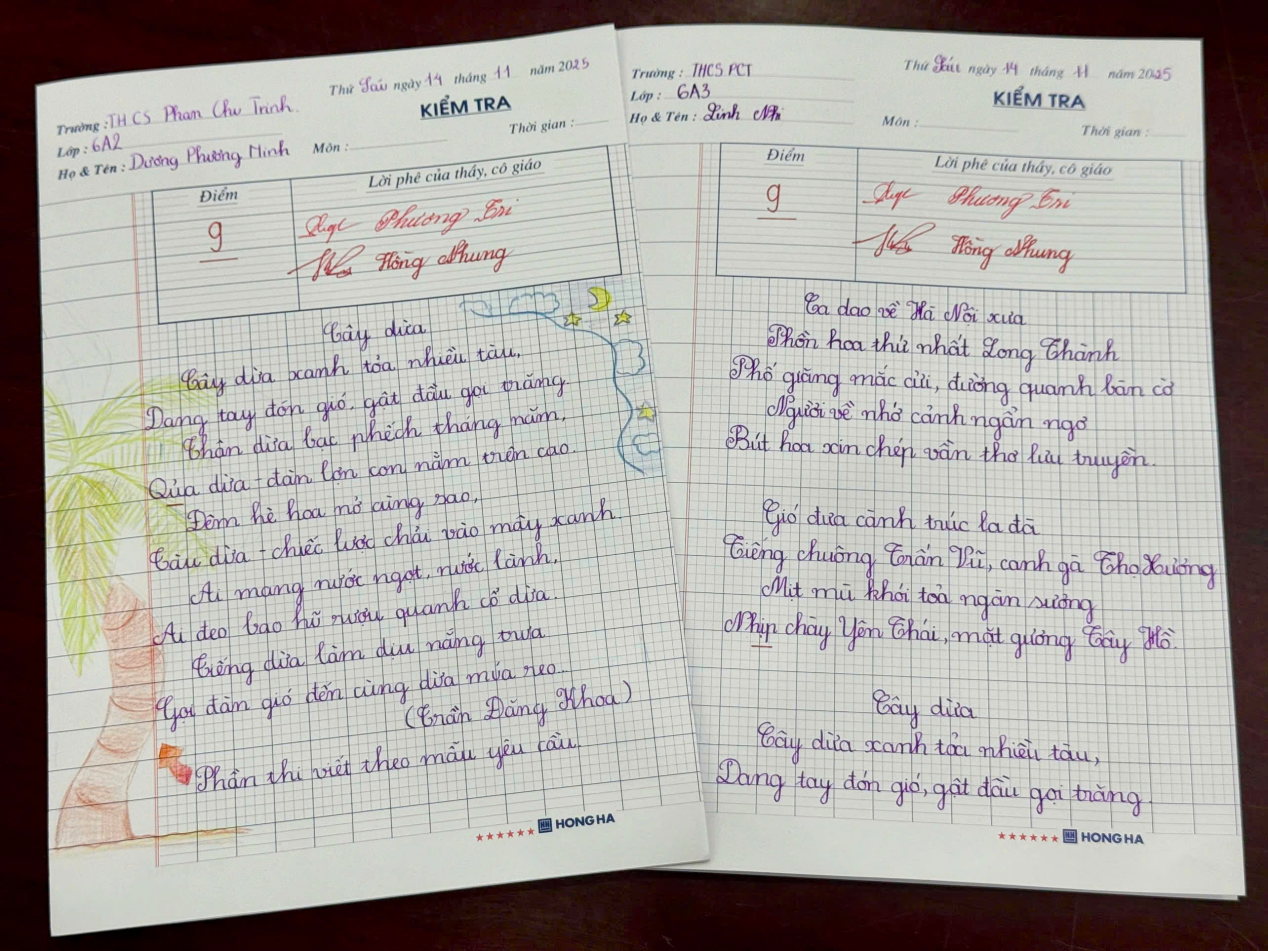 Thứ Sáu ngày 14 tháng 11 năm 2025
KIỂM TRA
Trường : THCS Phan Chu Trinh.
Lớp : 6A2
Họ & Tên : Dương Phương Minh
Môn :
Thời gian :
Điểm
Lời phê của thầy, cô giáo
9
Phương Tri
Hồng Nhung
Cây dừa
Cây dừa xanh tỏa nhiều tàu,
Dang tay đón gió, gật đầu gọi trăng
Thân dừa bạc phếch tháng năm,
Qủa dừa - đàn lợn con nằm trên cao.
Đêm hè hoa nở cùng sao,
Tàu dừa - chiếc lược chải vào mây xanh
Ai mang nước ngọt, nước lành,
Ai đeo bao hũ rượu quanh cổ dừa.
Tiếng dừa làm dịu nắng trưa
Gọi đàn gió đến cùng dừa múa reo...
(Trần Đăng Khoa)
Phần thi viết theo mẫu yêu cầu.
HONG HA
Trường : THCS PCT
Lớp : 6A3
Họ & Tên : Linh Nhi
Thứ Sáu ngày 14 tháng 11 năm 2025
KIỂM TRA
Môn :
Thời gian :
Điểm
Lời phê của thầy, cô giáo
9
Phương Tri
Hồng Nhung
Ca dao về Hà Nội xưa
Phồn hoa thứ nhất Long Thành
Phố giăng mắc cửi, đường quanh bàn cờ
Người về nhớ cảnh ngẩn ngơ
Bút hoa xin chép vần thơ lưu truyền.
Gió đưa cành trúc la đà
Tiếng chuông Trấn Vũ, canh gà Thọ Xương
Mịt mù khói toả ngàn sương
Nhịp chày Yên Thái, mặt gương Tây Hồ.
Cây dừa
Cây dừa xanh tỏa nhiều tàu,
Dang tay đón gió, gật đầu gọi trăng.
HONG HA